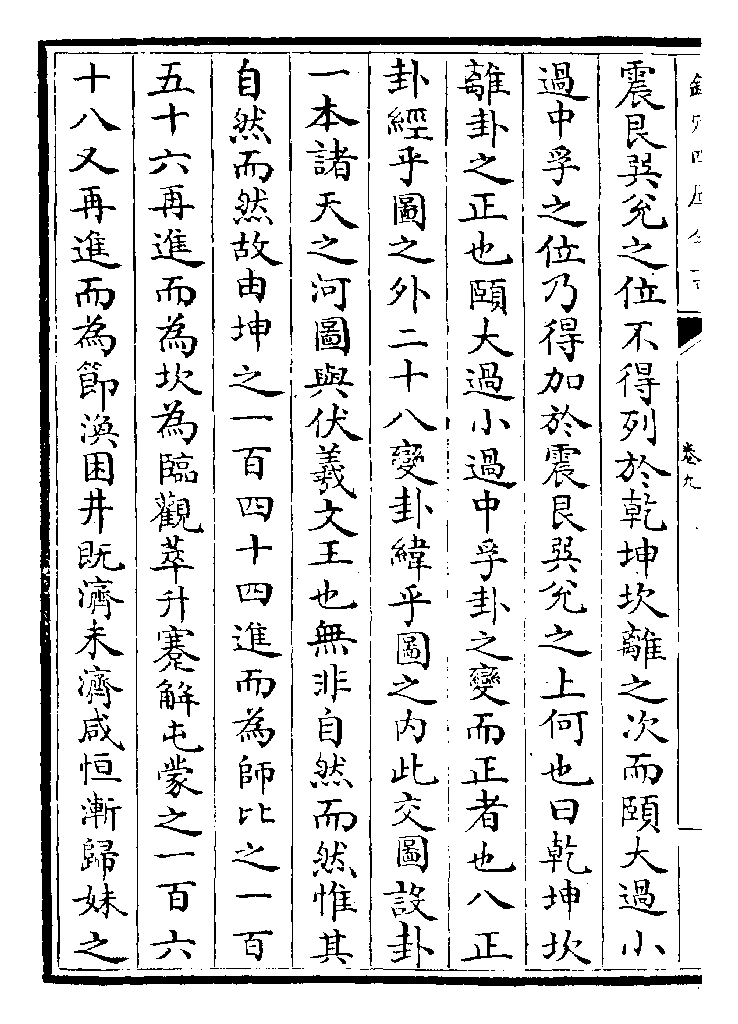 卷九
震艮巽兊之位不得列於乾坤坎離之次而頤大過小
過中孚之位乃得加於震艮巽兊之上何也曰乾坤坎
離卦之正也頤大過小過中孚卦之變而正者也八正
卦經乎圖之外二十八變卦緯乎圖之内此交圖設卦
一本諸天之河圖與伏羲文王也無非自然而然惟其
自然而然故由坤之一百四十四進而為師比之一百
五十六再進而為坎為臨觀萃升蹇解屯蒙之一百六
十八又再進而為節渙困井既濟未濟咸恒漸歸妹之